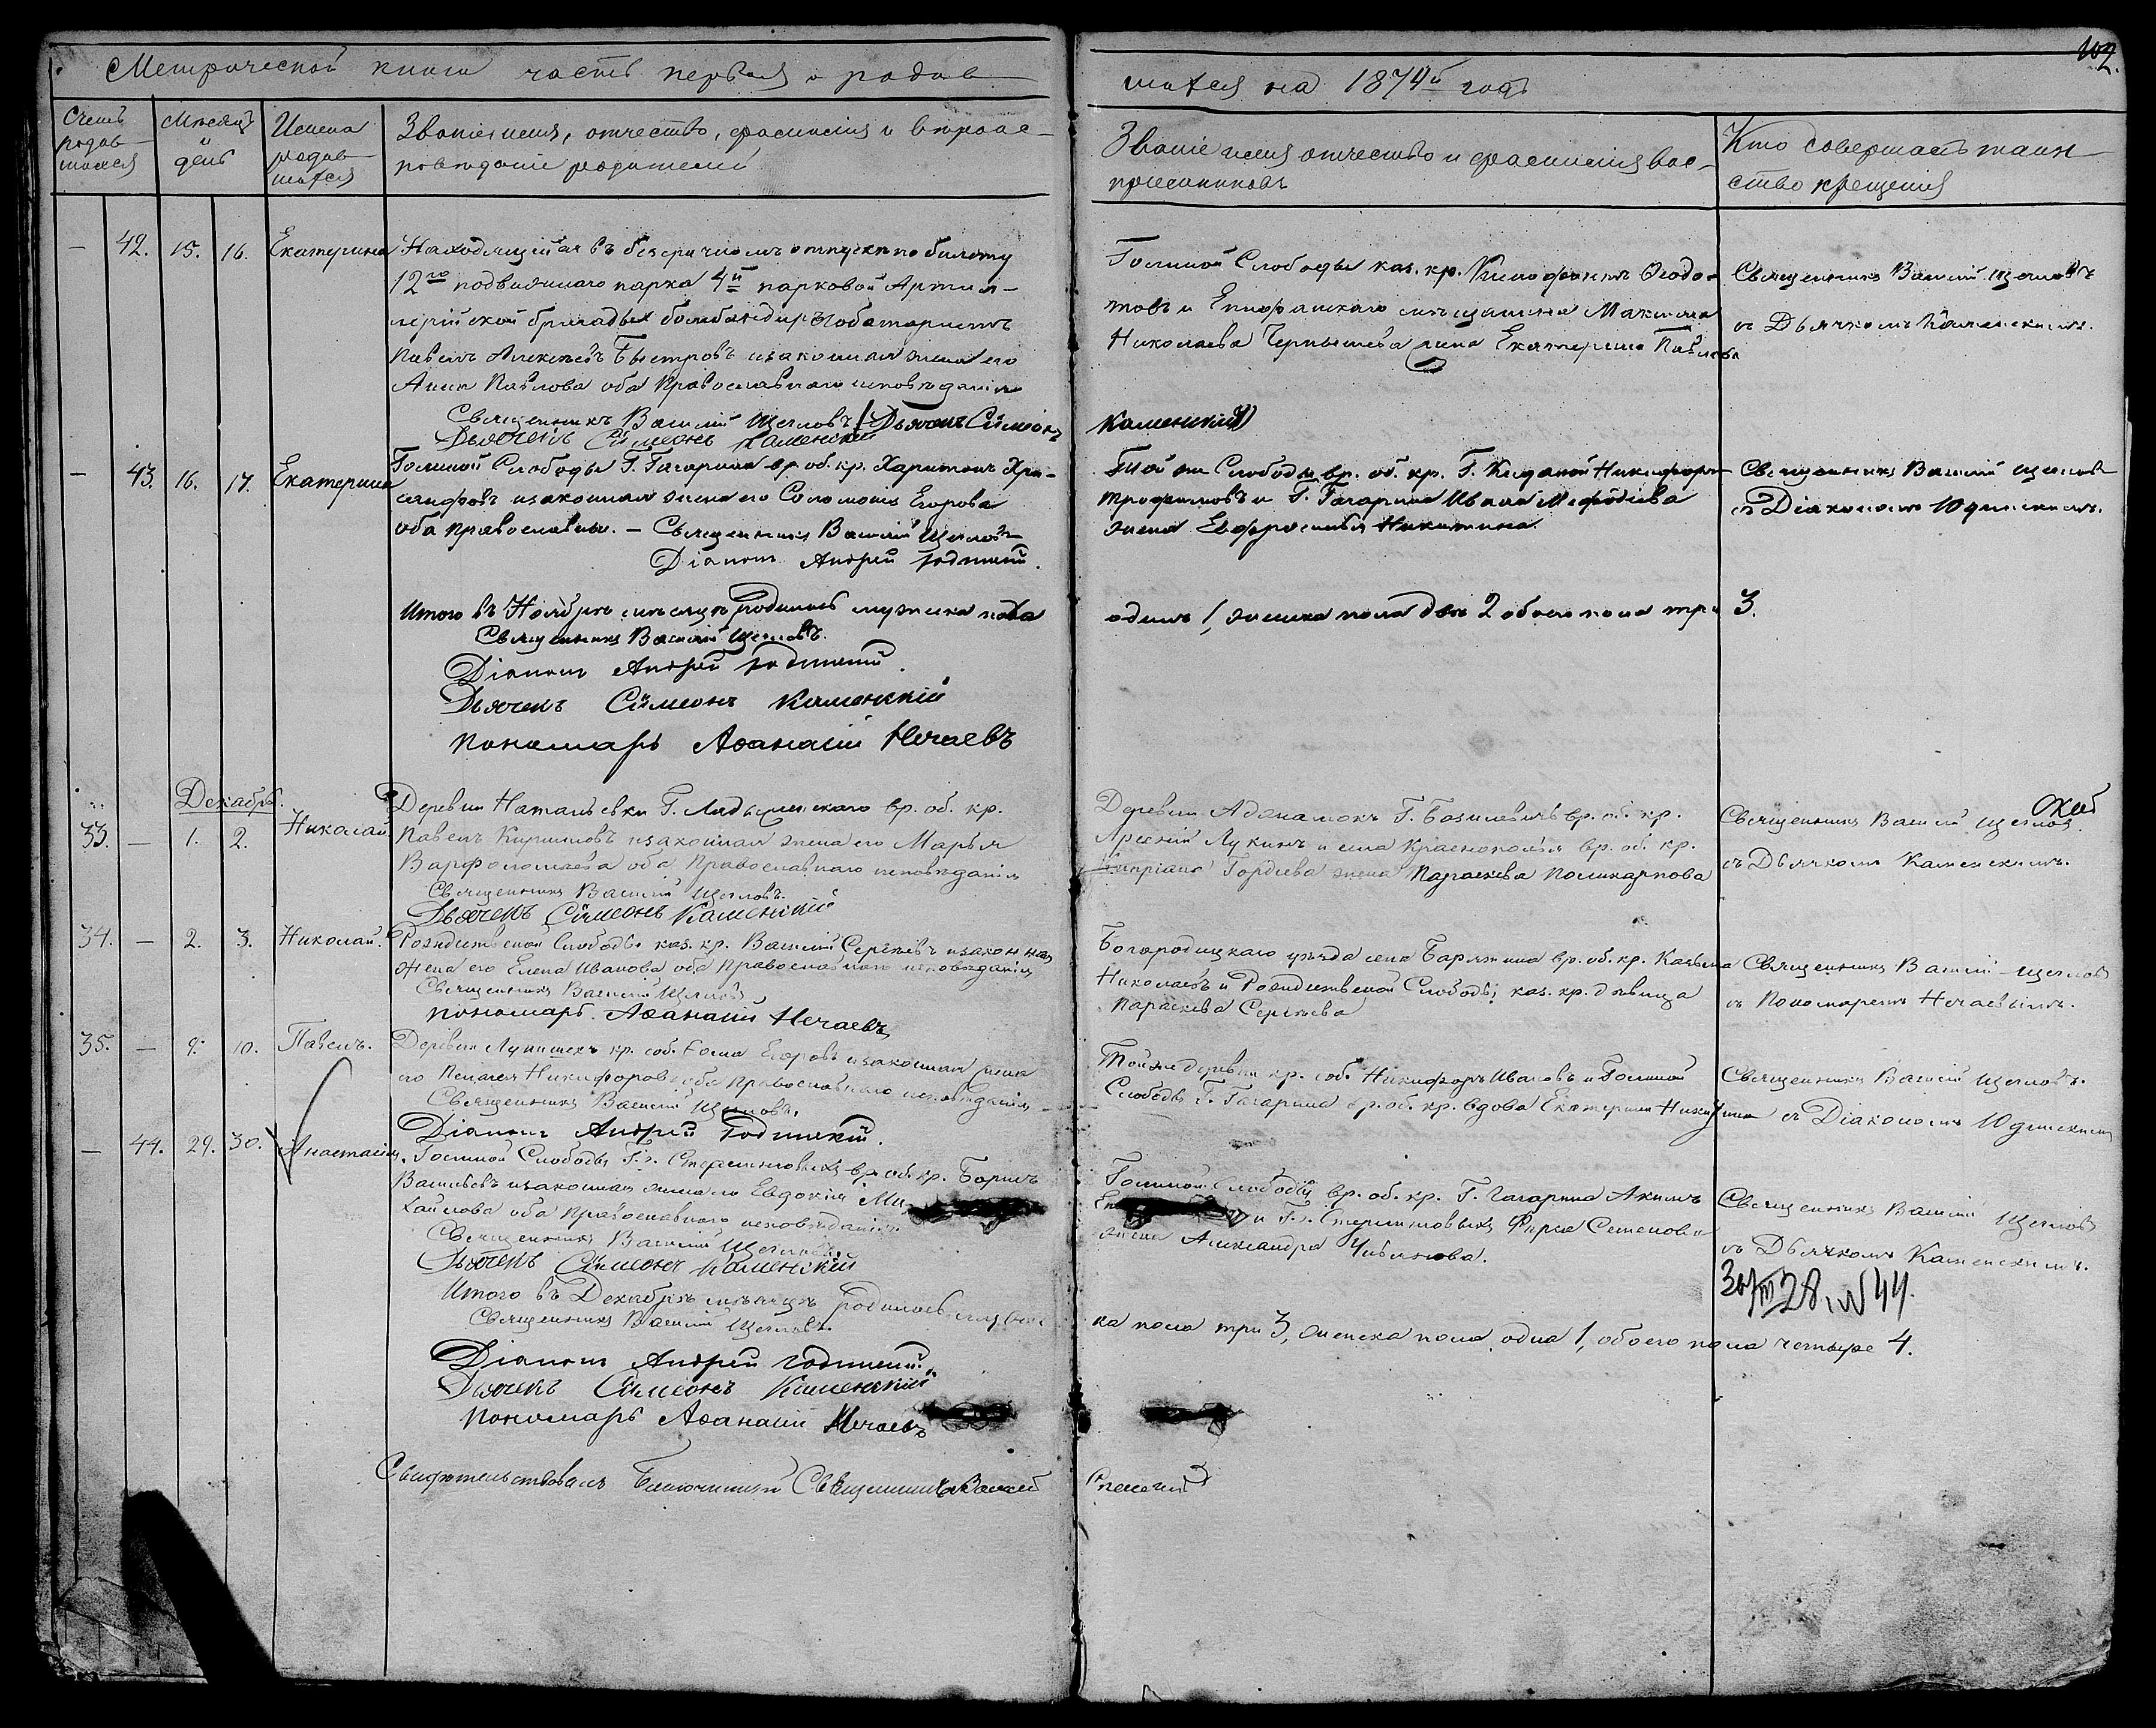 102.
Метрической книги часть первая о родив-
шихся на 1874й годъ
Счетъ родив-шихся
Мѣсяцъ и день
Имена родив-шихся
Званіе имя, отчество, фамилія и вѣроис-
повѣданіе родителей
Званіе имя отчество и фамилія вос-
пріемниковъ
Кто совершалъ таин-
ство крещенія
— 42. 15. 16. Екатерина
Находящійся въ безсрочномъ отпуску по билету
12го подвижнаго парка 4й парковой Артил-
лерійской бригады бомбандиръ
Павелъ Алексѣевъ Быстровъ и законная жена его
Анна Павлова оба Православнаго исповѣданія
Священникъ Василій Щегловъ Дьячекъ Сѵмеонъ
Дьячекъ Сѵмеонъ Каменскій
Гонной Слободы каз. кр. Ксенофонтъ Ѳеодо-
товъ и Епифанскаго мѣщанина Максима
Николаева Чернышева жена Екатерина Павлова
Каменскій
Священникъ Василій Щегловъ
съ Дьячкомъ Каменскимъ.
— 43. 16. 17. Екатерина
Гонной Слободы Г. Гагарина вр. об. кр. Харитонъ Хри-
санфовъ и законная жена его Соломонія Егорова
оба православны. — Священникъ Василій Щегловъ
Діаконъ Андрей
Той же Слободы вр. об. кр. Г. Никифоръ
Трофимовъ и Г. Гагарина Ивана Меѳодіева
жена Евфросинья Никитина
Священникъ Василій Щегловъ
съ Діакономъ
Итого въ Ноябрѣ мѣсяцѣ родилось мужска пола
одинъ 1, женска пола двѣ 2 обоего пола три 3.
Священникъ Василій Щегловъ.
Діаконъ Андрей
Дьячекъ Сѵмеонъ Каменскій
Пономарь Аѳанасій Нечаевъ
Декабрь.
33. — 1. 2. Николай
Деревни Натальевки Г. вр. об. кр.
Павелъ Кириловъ и законная жена его Марья
Варфоломеева оба Православнаго исповѣданія
Священникъ Василій Щегловъ.
Дьячекъ Сѵмеонъ Каменскій
Деревни Г. вр. об. кр.
Арсеній Лукинъ и села Краснополья вр. об. кр.
Кипріана Гордѣева жена Параскева Поликарпова
Священникъ Василій Щегловъ
съ Дьячкомъ Каменскимъ.
34. — 2. 3. Николай.
Рождественой Слободы каз. кр. Василій Сергѣевъ и законная
жена его Елена Иванова оба Православнаго исповѣданія
Священникъ Василій Щегловъ
Пономарь. Аѳанасій Нечаевъ
Богородицкаго уѣзда села Барятина вр. об. кр.
Николаевъ и Рождественой Слободы каз. кр. дѣвица
Параскева Сергѣева
Священникъ Василій Щегловъ
съ Пономаремъ Нечаевымъ.
35. — 9. 10. Павелъ.
Деревни кр. соб. Ѳома Егоровъ и законная жена
его Пелагея Никифорова оба Православнаго исповѣданія
Священникъ Василій Щегловъ.
Діаконъ Андрей
Тойже деревни кр. соб. Никифоръ Ивановъ и Гонной
Слободы Г. Гагарина вр. об. кр. вдова Екатерина Никитина
Священникъ Василій Щегловъ.
съ Діакономъ
— 44. 29. 30. Анастасія
Гонной Слободы Г.г. вр. об. кр. Борисъ
Васильевъ и законная жена его Евдокія Ми-
хайлова оба Православнаго исповѣданія.
Священникъ Василій Щегловъ.
Дьячекъ Сѵмеонъ Каменскій
Гонной Слободы вр. об. кр. Г. Гагарина Акимъ
и Г.г. Фирса Семенова
жена Александра
Священникъ Василій Щегловъ
съ Дьячкомъ Каменскимъ.
Итого въ Декабрѣ мѣсяцѣ родилось мужс-
ка пола три 3, женска пола одна 1, обоего пола четыре 4.
Священникъ Василій Щегловъ.
Діаконъ Андрей
Дьячекъ Сѵмеонъ Каменскій
Пономарь Аѳанасій Нечаевъ
Свидѣтельствовалъ Благочинный Священникъ Василій